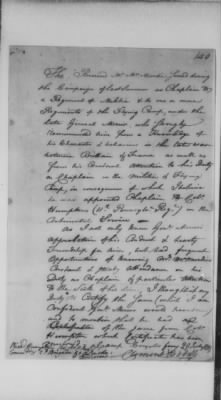 The Reverend Mr. McMordie served during
the Campaign of last Summer as Chaplain to
a Regiment of Militia & to one or more
Regiments of the Flying Camp, under the
late General Mercer, who strongly
recommended him from a knowledge of
his Character & behavior in the late War
between Britain & France as well as
from his constant Attention to his Duty
as Chaplain in the Militia & Flying
Camp, in consequence of which I believe
he was appointed Chaplain to Colo.
Humpton's (11th Pennsylva. Regt.) on the
Continental Service
As I not only knew Genl. Mercer's
approbation of his Conduct & heartily
Friendship for him, but had frequent
Opportunities of knowing Mr. McMordie's
Conduct & steady Attendance on his
Duty as Chaplain & particular Attention
to the Sick of the Army, I thought it my
Duty to Certify the same (which I am
Confident Genl. Mercer would have done)
and to mention that he had
Certificates of the same from Colo.
Humpton which Certificates have been